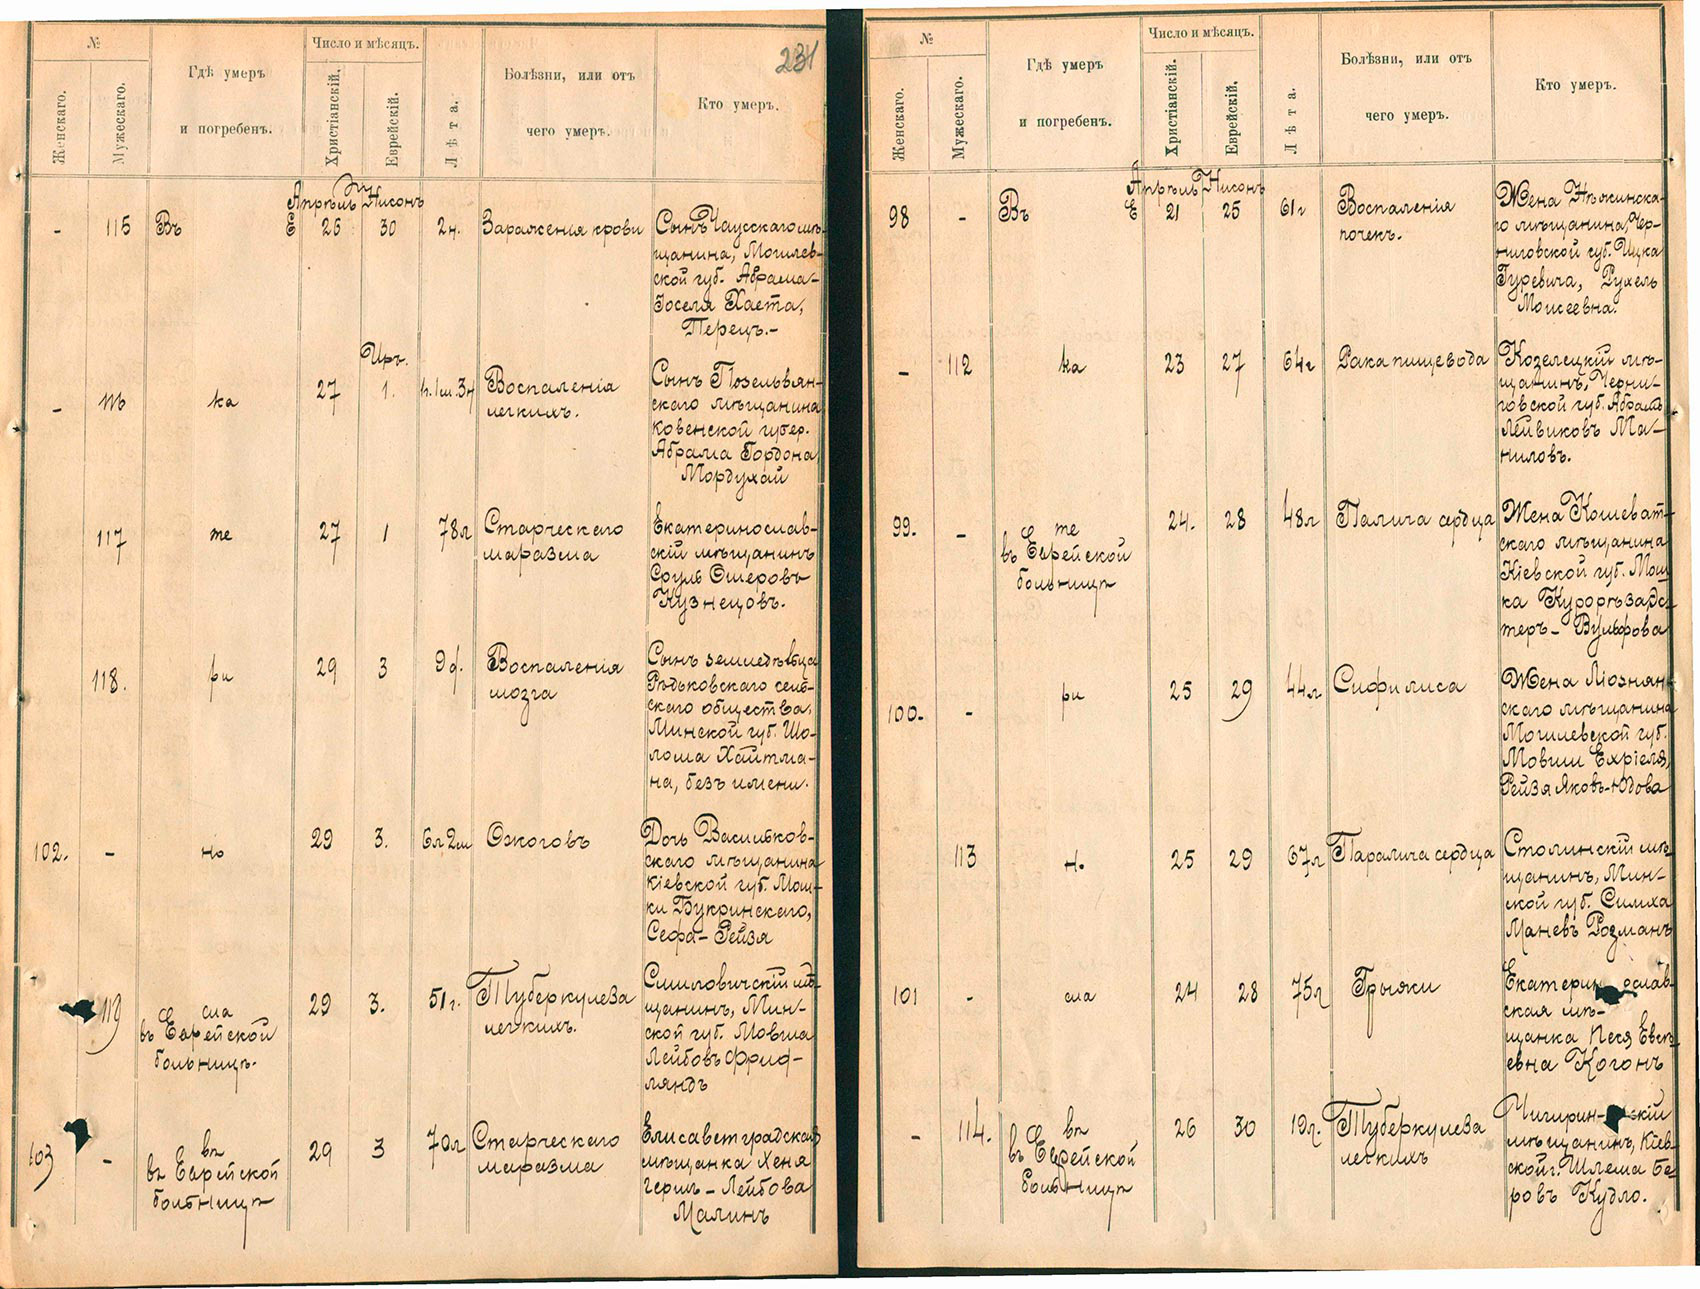 №
Женскаго.
Мужескаго.
Гдѣ умеръ
и погребенъ.
Число и мѣсяцъ.
Христіанскій.
Еврейскій.
Лѣта.
Болѣзни, или отъ
чего умеръ.
Кто умеръ.
231
Апрѣль Нисонъ
- 115 Въ Е 26 30 2н. Зараженія крови
Сынъ Чаусскаго мѣ-
щанина, Могилев-
ской губ. Абрама-
Іоселя Хаета,
Перецъ.-
Иръ.
- ка 27 1. Воспаленія
легкихъ.
Сынъ Позельвян-
скаго мѣщанина
Ковенской губер.
Абрама Гордона
Мордухай
117 те 27 1 78л Старческаго
маразма
Екатеринослав-
скій мѣщанинъ
Сруль Ошеровъ
Кузнецовъ.
118. ри 29 3 9д. Воспаленія
мозга
Сынъ земледѣльца
сель-
скаго общества,
Минской губ. Шо-
лома Хайтма-
на, безъ имени.
102. - но 29 3. 6л 2м Ожоговъ
Дочь Васильков-
скаго мѣщанина
Кіевской губ. Мош-
ки Букринскаго,
Сефа-Рейзя
119 сла
въ Еврейской
больницѣ.
29 3. 51г. Туберкулеза
легкихъ.
Смиловичскій мѣ-
щанинъ, Мин-
ской губ. Мовша
Лейбовъ Фрид-
ляндъ
103 - въ
въ Еврейской
больницѣ
29 3 70л Старческаго
маразма
Елисаветградская
мѣщанка Хеня
Гериш-Лейбова
Малинъ
№
Женскаго.
Мужескаго.
Гдѣ умеръ
и погребенъ.
Число и мѣсяцъ.
Христіанскій.
Еврейскій.
Лѣта.
Болѣзни, или отъ
чего умеръ.
Кто умеръ.
Апрѣль Нисонъ
98 - Въ Е 21 25 61г Воспаленія
почекъ.
Жена Нѣжинска-
го мѣщанина, Чер-
ниговской губ. Ицка
Гуревича, Рухель
Моисеевна.
- 112 ка 23 27 64г Рака пищевода
Козелецкій мѣ-
щанинъ, Черни-
говской губ. Абрамъ
Лейвиковъ Ма-
ниловъ.
99. - те
въ Еврейской
больницѣ
24. 28 48л сердца
Жена Кошеват-
скаго мѣщанина
Кіевской губ. Мош
ка
Вульфова
100. - ри 25 29 44л Сифилиса
Жена Лiознян-
скаго мѣщанина
Могилевской губ.
Мовши Ехріеля,
Рейзя Яковъ-Юдова
113 н. 25 29 67л Паралича сердца
Столинскій мѣ-
щанинъ, Мин-
ской губ. Симха
Маневъ Розманъ
101 - сла 24 28 75л Грыжи
Екатеринослав-
ская мѣ-
щанка Песя Евсѣ-
евна Когонъ
- 114. въ
въ Еврейской
больницѣ
26 30 19л. Туберкулеза
легкихъ
Чигиринскій
мѣщанинъ, Кіев-
ской г. Шлема Бе-
ровъ Кудло.